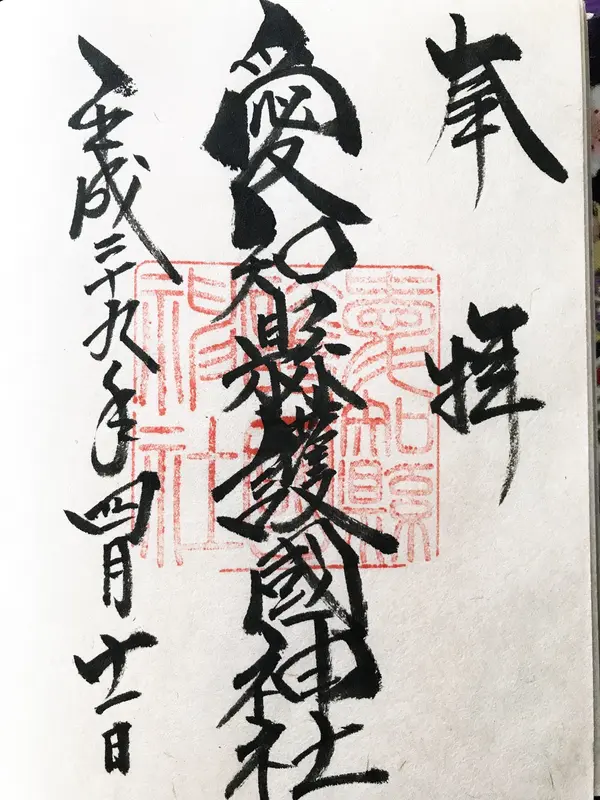 奉拝
愛知縣護國神社
平成二十九年四月十一日
愛知縣護國神社